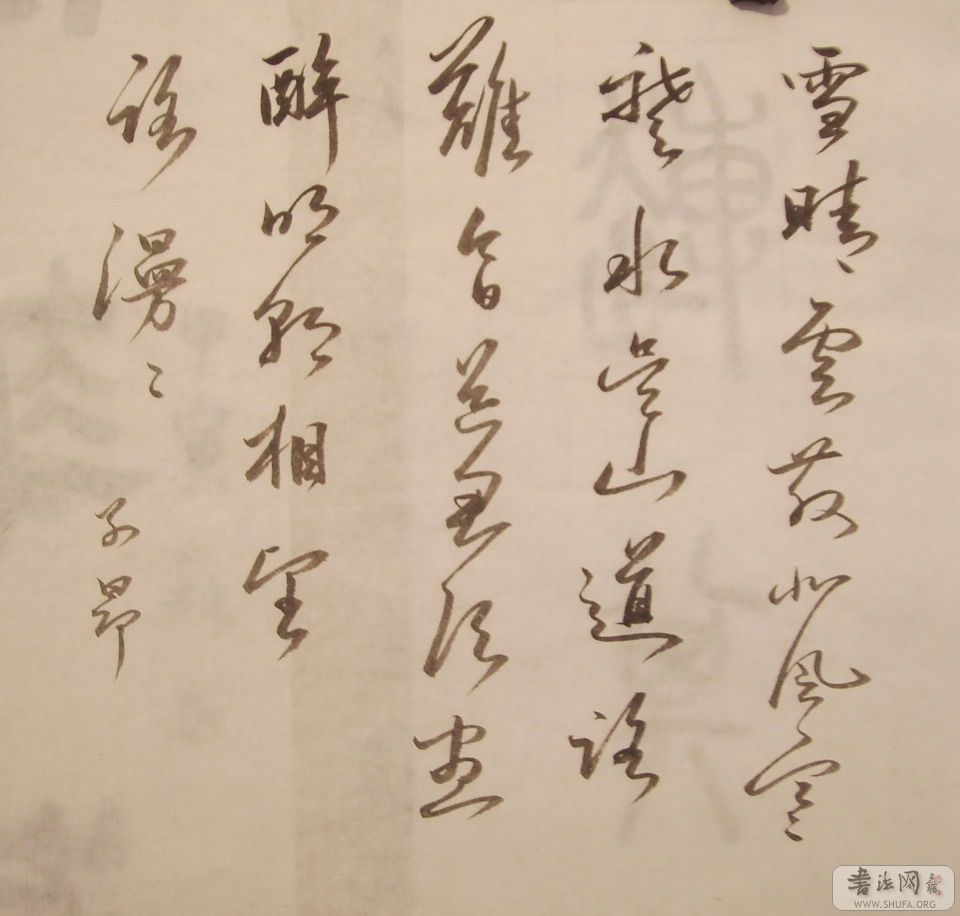 雪晴雲散北風寒
楚水吳山道路
難今日送君須盡
醉明朝相望
路漫〻
子昂
書法网
WWW.SHUFA.ORG